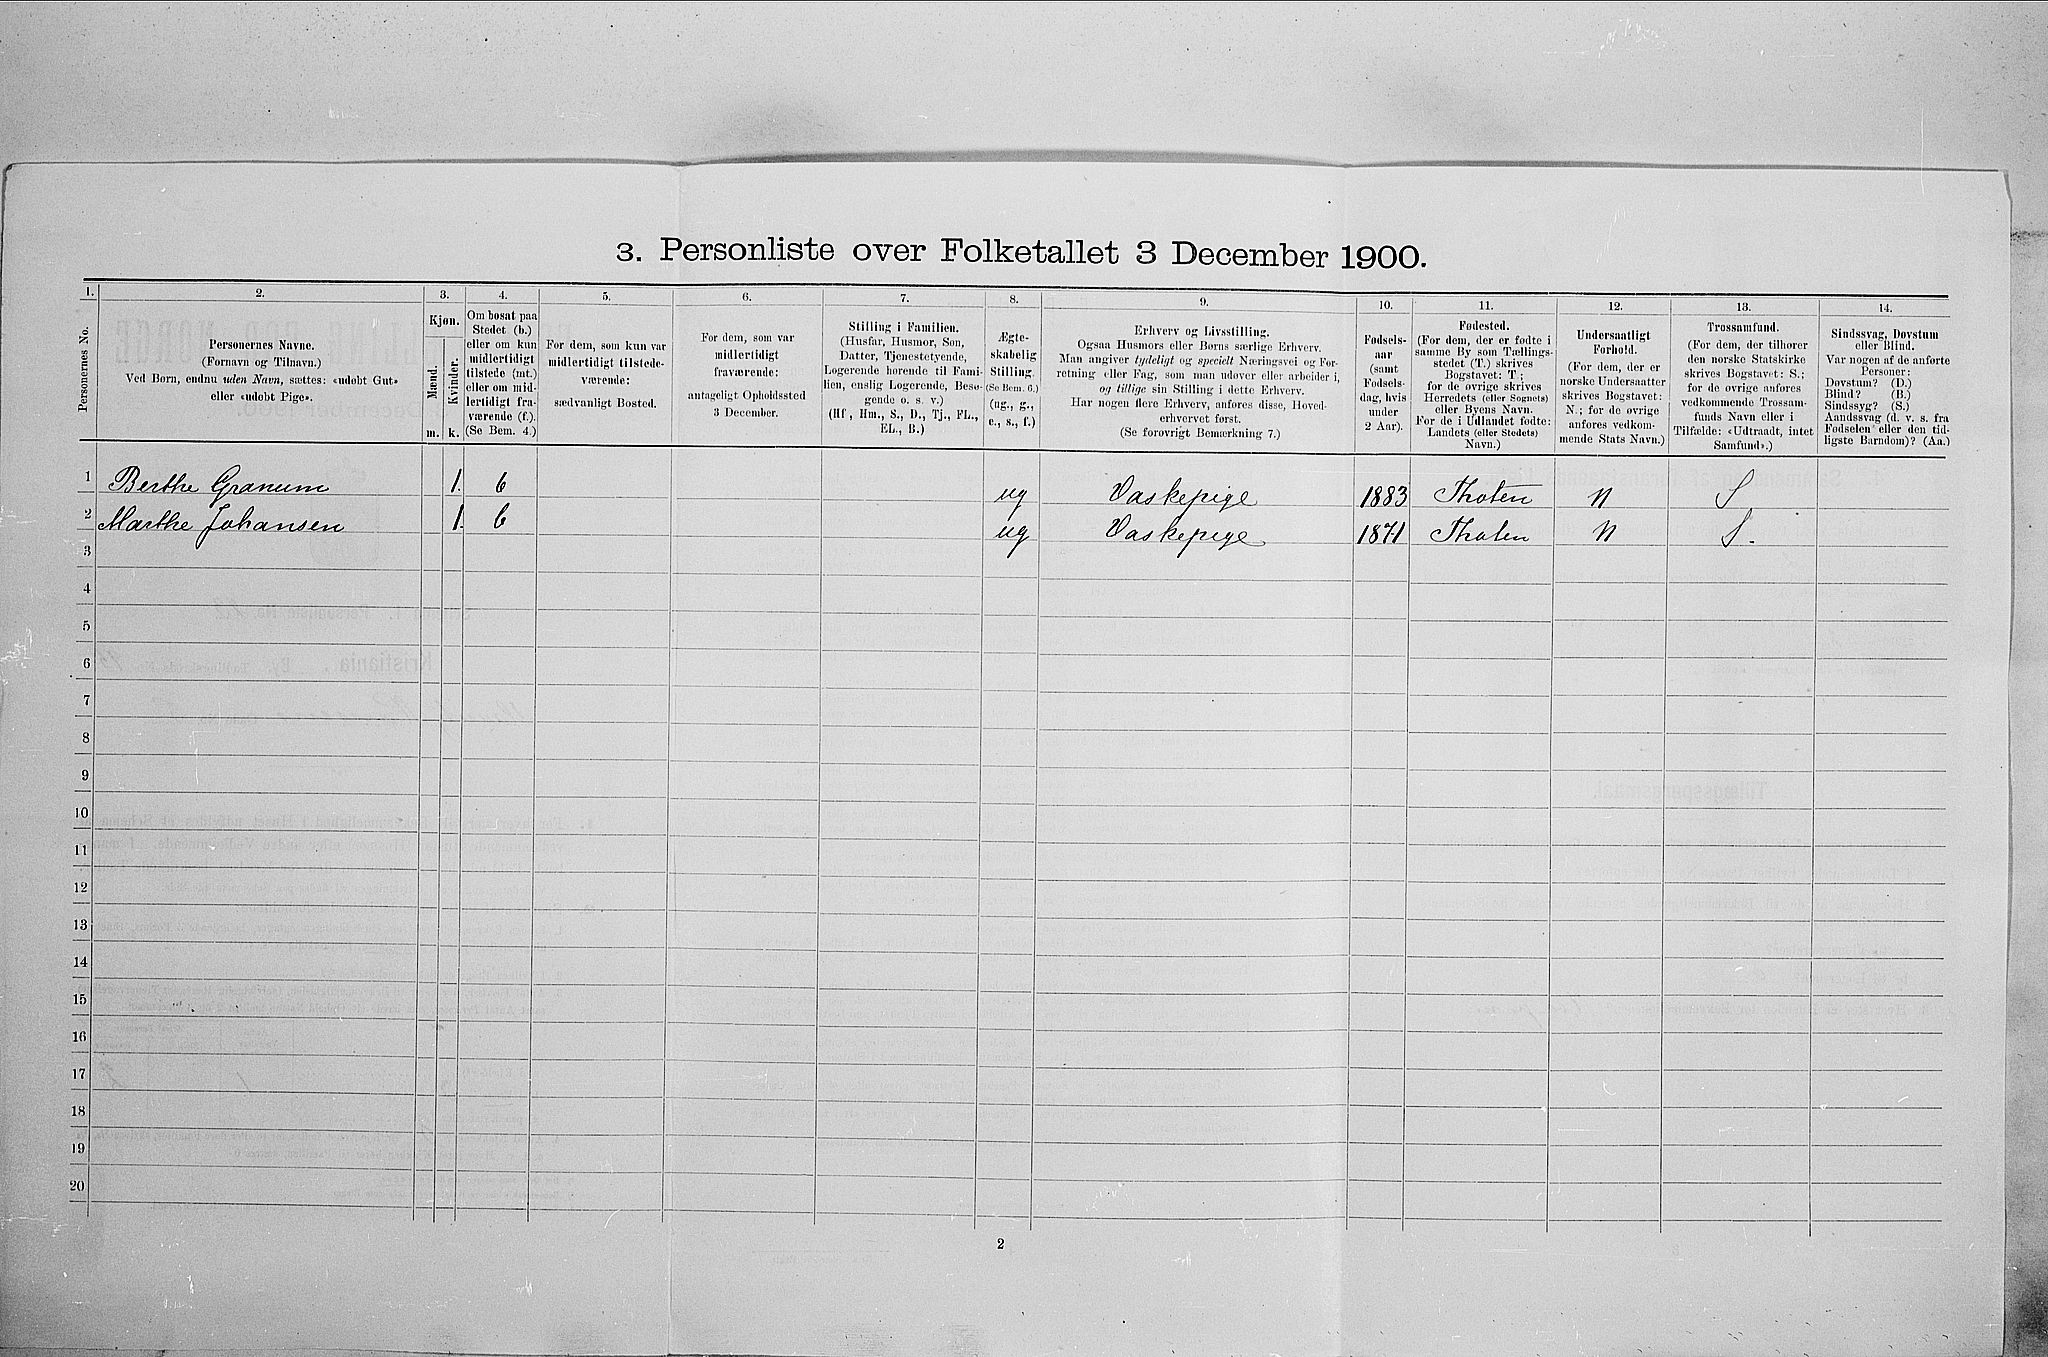 3. Personliste over Folketallet 3 December 1900.
1.
2.
3.
4.
5.
6.
7.
8.
9.
10.
11.
12.
13.
14.
Personernes No.
Personernes Navne.
(Fornavn og Tilnavn.)
Ved Børn, endnu uden Navn, sættes: «udøbt Gut»
eller «udøbt Pige».
Kjøn.
Mænd.
Kvinder.
m.
k.
Om bosat paa
Stedet (b.)
eller om kun
midlertidigt
tilstede (mt.)
eller om mid-
lertidigt fra-
værende (f.).
(Se Bem. 4.)
For dem, som kun var
midlertidigt tilstede-
værende:
sædvanligt Bosted.
For dem, som var
midlertidigt
fraværende:
antageligt Opholdssted
3 December.
Stilling i Familien.
(Husfar, Husmor, Søn,
Datter, Tjenestetyende,
Logerende hørende til Fami-
lien, enslig Logerende, Besø-
gende o. s. v.)
(Hf., Hm., S., D., Tj., FL.,
EL., B.)
Ægte-
skabelig
Stilling.
(Se Bem. 6.)
(ug., g.,
e., s., f.)
Erhverv og Livsstilling.
Ogsaa Husmors eller Børns særlige Erhverv.
Man angiver tydeligt og specielt Næringsvei og For-
retning eller Fag, som man udøver eller arbeider i,
og tillige sin Stilling i dette Erhverv.
Har nogen flere Erhverv, anføres disse, Hoved-
erhvervet først.
(Se forøvrigt Bemærkning 7.)
Fødsels-
aar
(samt
Fødsels-
dag, hvis
under
2 Aar).
Fødested.
(For dem, der er fødte i
samme By som Tællings-
stedet (T.) skrives
Bogstavet: T;
for de øvrige skrives
Herredets (eller Sognets)
eller Byens Navn.
For de i Udlandet fødte:
Landets (eller Stedets)
Navn.)
Undersaatligt
Forhold.
(For dem, der er
norske Undersaatter
skrives Bogstavet:
N.; for de øvrige
anføres vedkom-
mende Stats Navn.)
Trossamfund.
(For dem, der tilhører
den norske Statskirke
skrives Bogstavet: S.;
for de øvrige anføres
vedkommende Trossam-
funds Navn eller i
Tilfælde: «Udtraadt, intet
Samfund».)
Sindssvag, Døvstum
eller Blind.
Var nogen af de anførte
Personer:
Døvstum? (D.)
Blind? (B.)
Sindssyg? (S.)
Aandssvag (d. v. s. fra
Fødselen eller den tid-
ligste Barndom)? (Aa.)
1 Berthe Granum 1. b ug Vaskepige 1883 Thoten N S
2 Marthe Johansen 1. b ug Vaskepige 1871 Thoten N S.
3
4
5
6
7
8
9
10
11
12
13
14
15
16
17
18
19
20
2